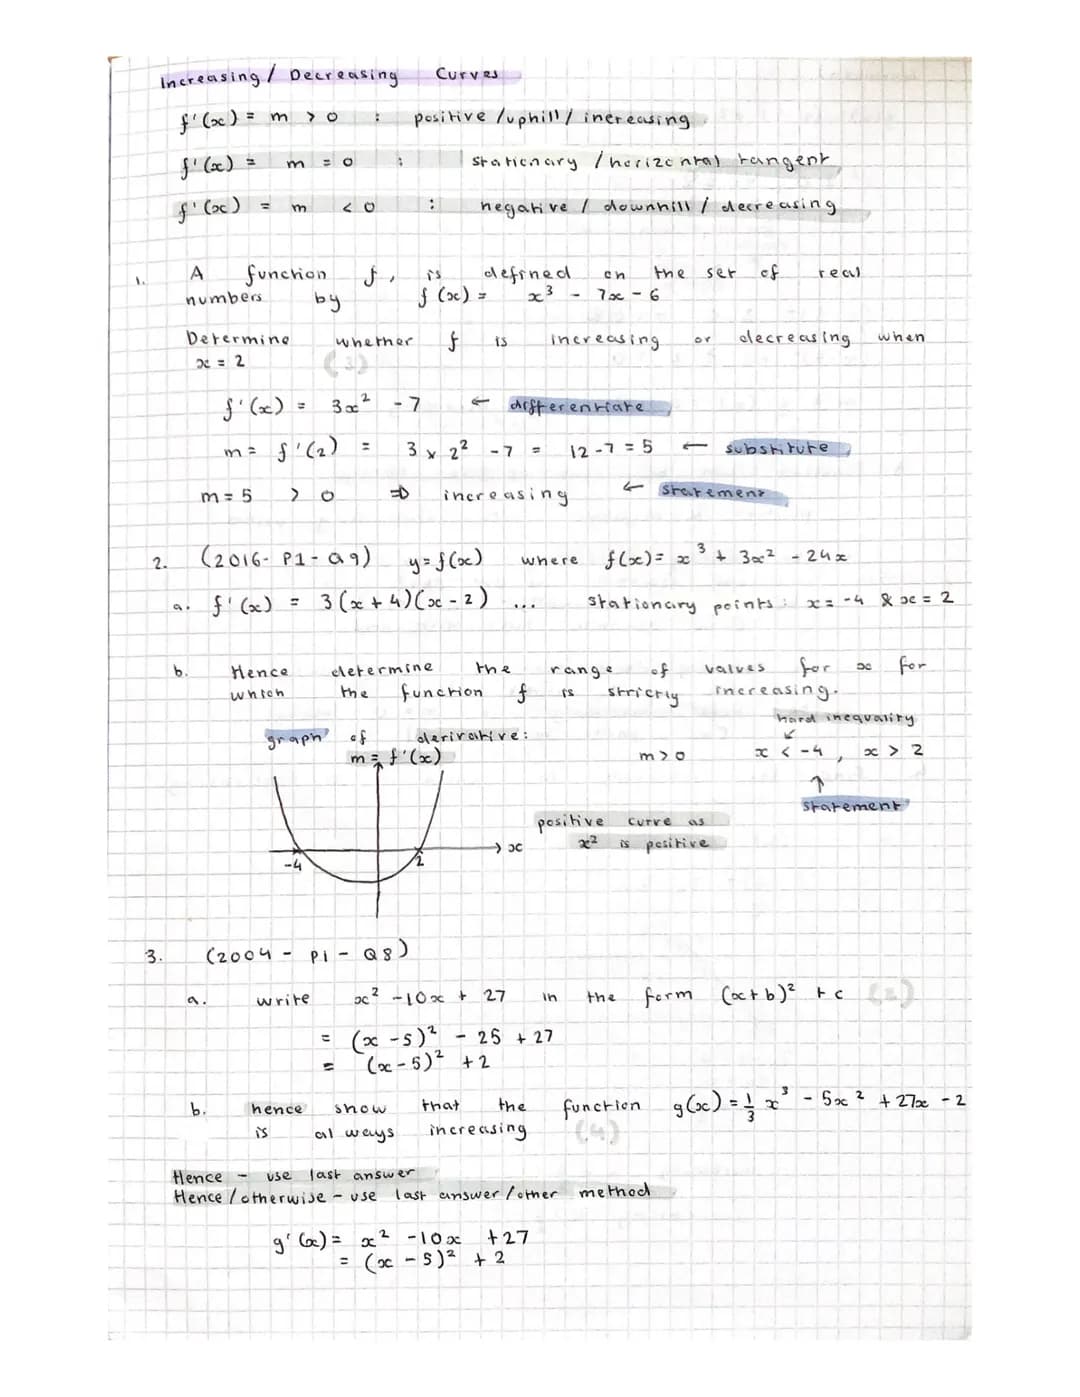 Increasing / Decreasing Curves
f'(x) = m > 0 : positive / uphill / increasing
f'(x) = m = 0 : stationary / horizontal tangent
f'(x) = m < 0 : negative / downhill / decreasing
1. A function f, is defined on the set of real
numbers by f(x) = x³ - 7x - 6
Determine whether f is increasing or decreasing when
x = 2 (3)
f'(x) = 3x² - 7 ← differentiate
m = f'(2) = 3 x 2² - 7 = 12 - 7 = 5 ← substitute
m = 5 > 0 ⇒ increasing ← statement
2. (2016 - P1 - Q9) y = f(x) where f(x) = x³ + 3x² - 24x
a. f'(x) = 3(x + 4)(x - 2) ... stationary points : x = -4 & x = 2
b. Hence determine the range of values for x for
which the function f is strictly increasing.
hard inequality
graph of derivative:
m = f'(x) m > 0 x < -4 , x > 2
↑
statement
positive curve as
x² is positive
-4 2 x
3. (2004 - P1 - Q8)
a. write x² - 10x + 27 in the form (x + b)² + c (2)
= (x - 5)² - 25 + 27
= (x - 5)² + 2
b. hence show that the function g(x) = 1/3 x³ - 5x² + 27x - 2
is always increasing (4)
Hence - use last answer
Hence / otherwise - use last answer / other method
g'(x) = x² - 10x + 27
= (x - 5)² + 2